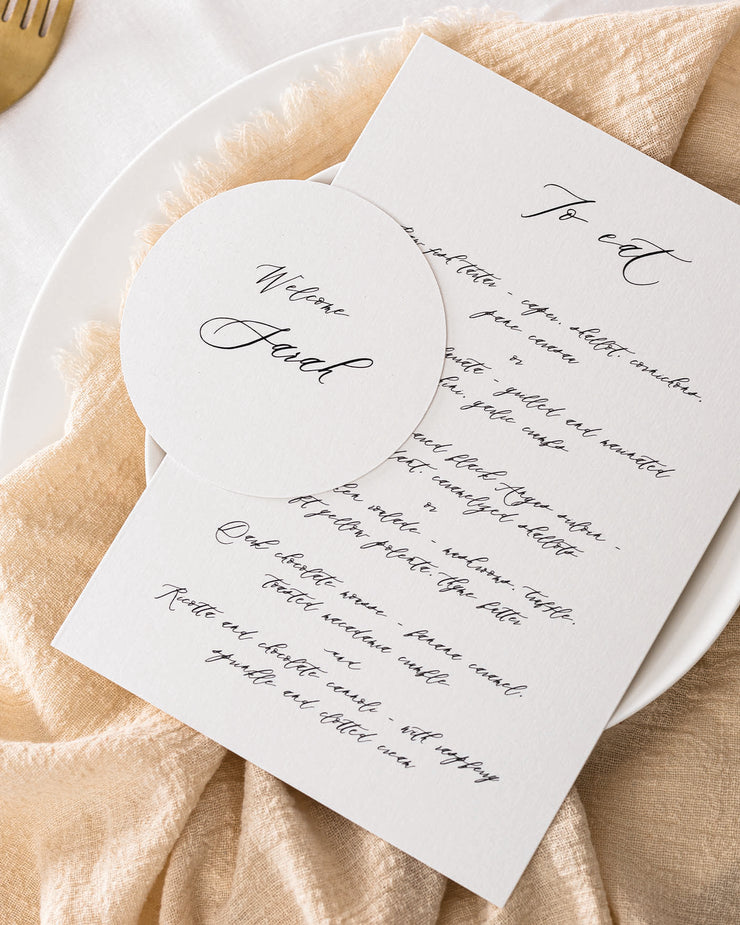 Welcome
Sarah
To eat
fish tartar - caper, shallot, cornichons,
pane carasau
or
- grilled and marinated
garlic crumbs
black Angus sirloin -
caramelized shallots
or
- mushrooms, truffle,
yellow polenta, thyme butter
Dark chocolate mousse - banana caramel,
toasted macadamia crumble
and
Ricotta and chocolate cannoli - with raspberry
sprinkle and clotted cream